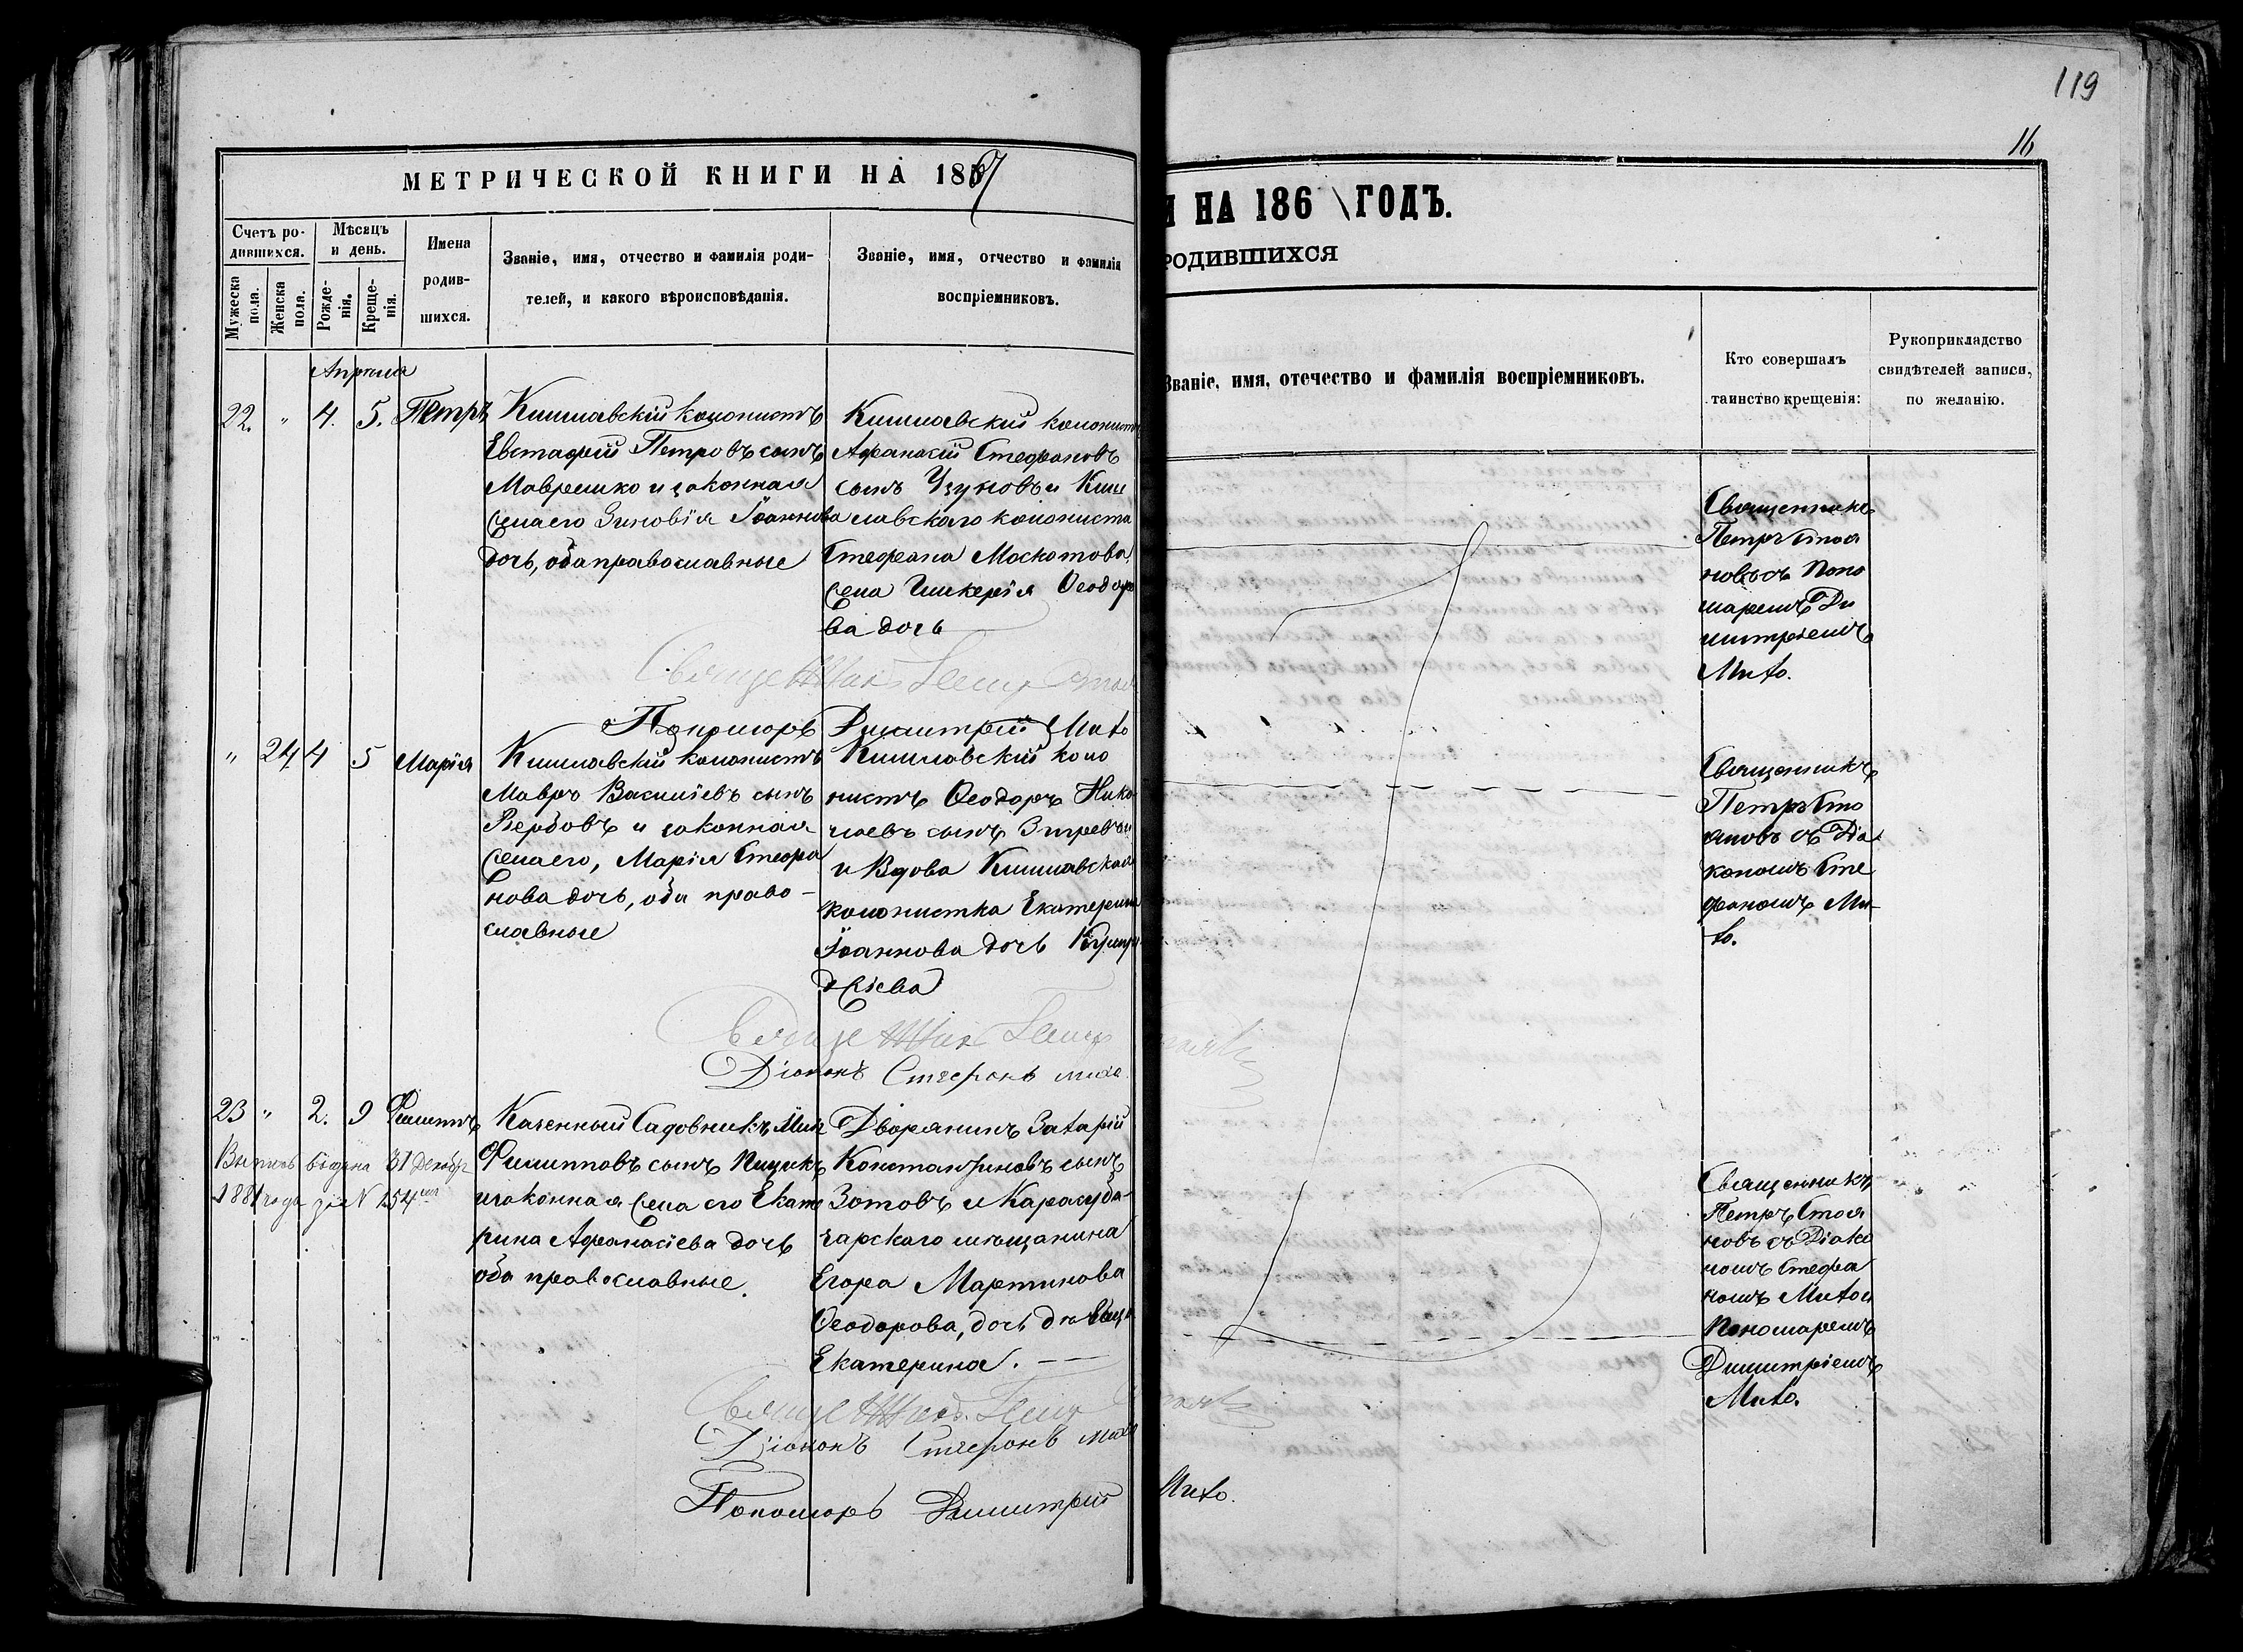 119
16
МЕТРИЧЕСКОЙ КНИГИ НА 1867
И НА 186 \ ГОДЪ.
РОДИВШИХСЯ
Счетъ ро-
дившихся.
Мѣсяцъ
и день.
Мужеска
пола.
Женска
пола.
Рожде-
нія.
Креще-
нія.
Имена
родив-
шихся.
Званіе, имя, отчество и фамилія роди-
телей, и какого вѣроисповѣданія.
Званіе, имя, отчество и фамилія
воспріемниковъ.
Званіе, имя, отечество и фамилія воспріемниковъ.
Кто совершалъ
таинство крещенія:
Рукоприкладство
свидѣтелей записи,
по желанію.
Апрѣля
22. " 4. 5. Петръ
Кишлавскій колонистъ
Евстафій Петровъ сынъ
Маврешко и законная
жена его Зиновія Іоаннова
дочь, оба православные
Кишлавский колонистъ
Афанасій Стефановъ
сынъ Узуновъ и Киш
лавскаго колониста
Стефана Москотова
жена Гликерія Ѳеодоро
ва дочь
Священникъ
Петръ Стоя
новъ съ Поно
маремъ Ди
митріемъ
Михо.
Священник Петр Стоя
Пономарь Димитрій Михо
" 24 4 5 Марія
Кишлавскій колонистъ
Мавръ Василіевъ сынъ
Вербовъ и законная
жена его, Марія Стефа
нова дочь, оба право-
славные
Кишлавский коло
нистъ Ѳеодоръ Нико
лаевъ сынъ
и Вдова Кишлавская
колонистка Екатерина
Іоаннова дочь
джіева
Священникъ
Петръ Сто
яновъ съ Діа
кономъ Сте
фаномъ Ми-
хо.
Священник Петр
Діаконъ Стефанъ Михо
23 " 2. 9 Филиппъ
Выпись выдана 31 Декабр
1881 года за N 154
Казенный Садовникъ
Филипповъ сынъ Пицикъ
и законная жена его Екате
рина Афанасіева дочь
оба православные.
Дворянинъ Захарій
Константиновъ сынъ
Зотовъ и Карасуба-
зарскаго мѣщанина
Егора Мартинова
Ѳеодорова, дочь дѣвица
Екатерина. —
Священникъ
Петръ Стоя
новъ съ Діако
номъ Стефа
номъ Михо и
Пономаремъ
Димитріемъ
Михо.
Священник Петр
Діаконъ Стефанъ Михо
Пономарь Димитрій Михо.